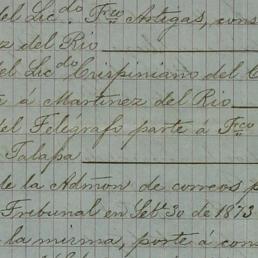 del Lic.do Fco Artigas, cons
ez del Rio
del Licdo Crispiniano del C
te á Martinez del Rio
del Telégrafo parte á Fco
Jalapa
de la Admon de correos p
Tribunal en Setb. 30 de 1873
la misma, porte á com